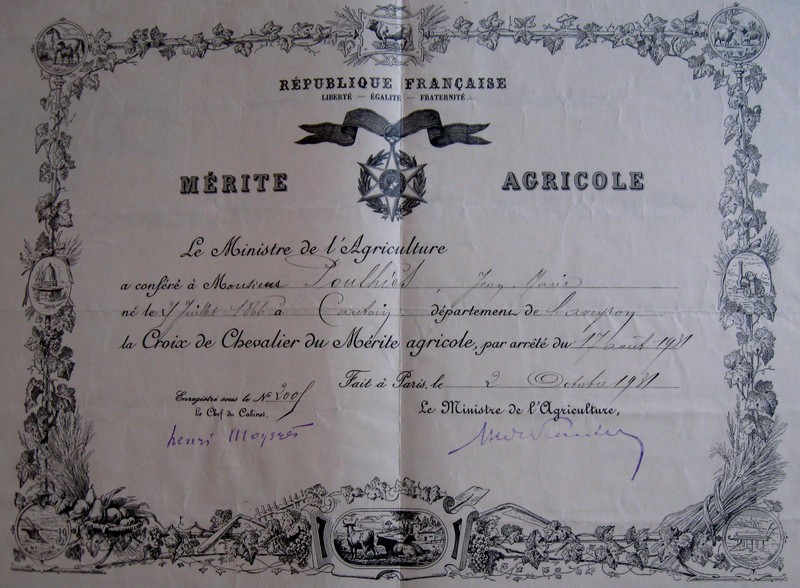 RÉPUBLIQUE FRANÇAISE
LIBERTÉ — ÉGALITÉ — FRATERNITÉ
MÉRITE AGRICOLE
Le Ministre de l'Agriculture
a conféré à Monsieur Poulhiès, Jean Marie
né le Juillet 1866 à Cantoin département de l'aveyron
la Croix de Chevalier du Mérite agricole, par arrêté du 17 août
Fait à Paris, le 2 Octobre
Enregistré sous le N°
Le Chef du Cabinet, Le Ministre de l'Agriculture,
henri